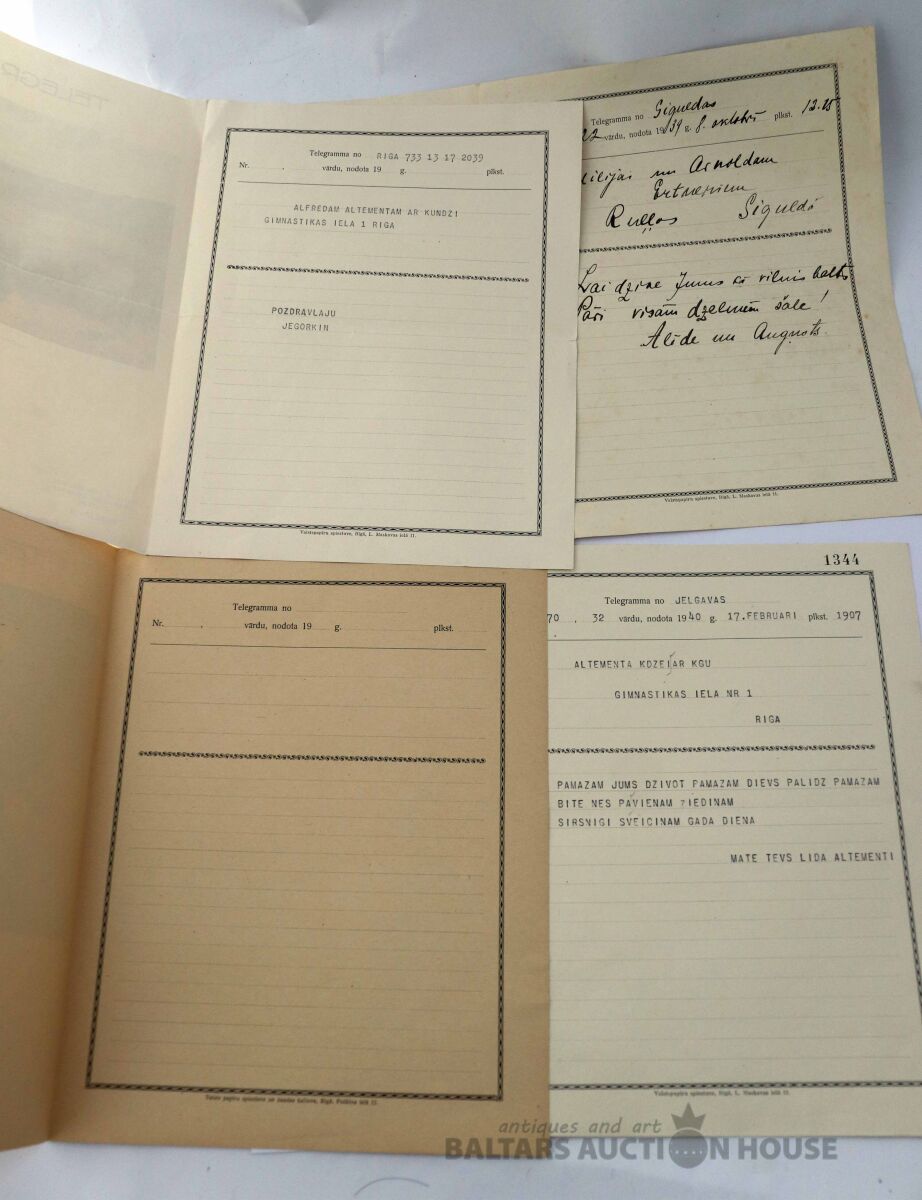 TELEGR
Telegramma no RIGA 733 13 17 2039
Nr. . vārdu, nodota 19 g. plkst.
ALFREDAM ALTEMENTAM AR KUNDZI
GIMNASTIKAS IELA 1 RIGA
POZDRAVLAJU
JEGORKIN
Valstspapīru spiestuve, Rīgā, L. Maskavas ielā 11.
Telegramma no Siguldas
22 vārdu, nodota 1939 g. 8. oktobrī plkst. 12.25
un Arnoldam
Siguldā
Lai dzīve Jums kā vilnis balts
Pāri visām dzelmēm šalc!
Alide un Augusts.
Valstspapīru spiestuve, Rīgā, L. Maskavas ielā 11.
Telegramma no
Nr. . vārdu, nodota 19 g. plkst.
1344
Telegramma no JELGAVAS
70 . 32 vārdu, nodota 1940 g. 17.FEBRUARI plkst. 1907
ALTEMENTA KDZEI AR KGU
GIMNASTIKAS IELA NR 1
RIGA
PAMAZAM JUMS DZIVOT PAMAZAM DIEVS PALIDZ PAMAZAM
BITE NES PAVIENAM ZIEDINAM
SIRSNIGI SVEICINAM GADA DIENA
MATE TEVS LIDA ALTEMENTI
Valstspapīru spiestuve, Rīgā, L. Maskavas ielā 11.
antiques and art
BALTARS AUCTION HOUSE